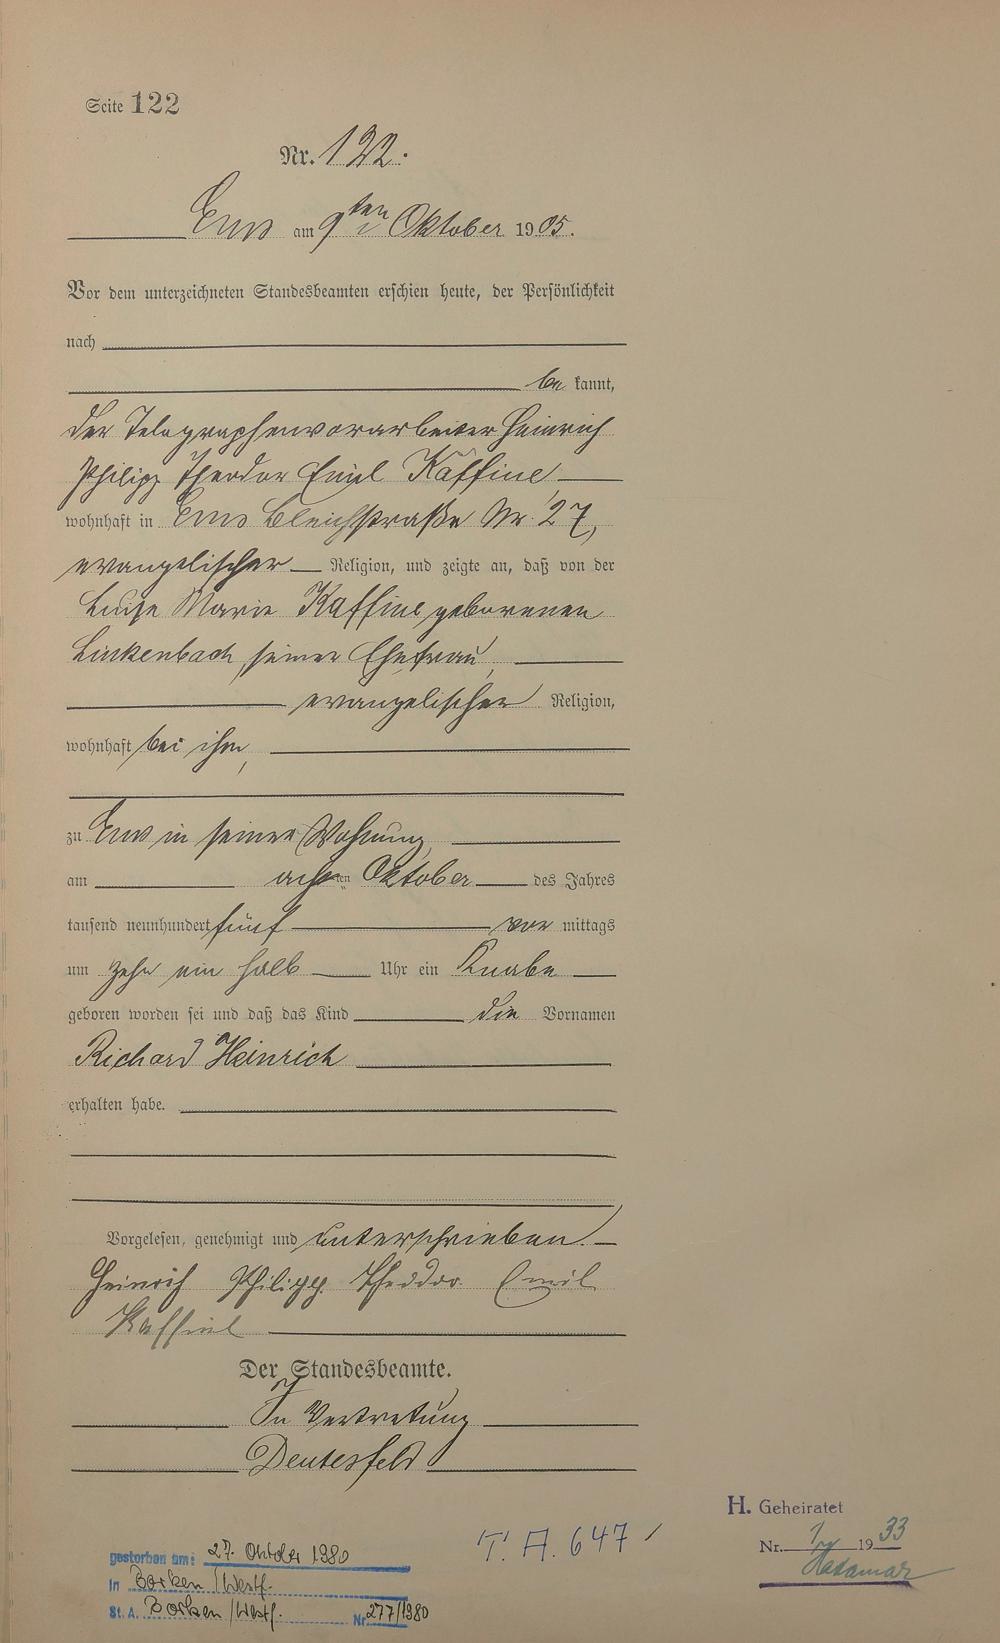 Seite 122
Nr. 122.
Ems am 9ten Oktober 1905.
Vor dem unterzeichneten Standesbeamten erschien heute, der Persönlichkeit
nach
be kannt,
der Telegraphenvorarbeiter Heinrich
Philipp Theodor Emil Kaffine
wohnhaft in Ems Bleichstraße Nr. 27,
evangelischer Religion, und zeigte an, daß von der
Luise Marie Kaffine geborenen
Linkenbach, seiner Ehefrau,
evangelischer Religion,
wohnhaft bei ihm,
zu Ems in seiner Wohnung,
am achten Oktober des Jahres
tausend neunhundert fünf vor mittags
um zehn ein halb Uhr ein Knabe
geboren worden sei und daß das Kind die Vornamen
Richard Heinrich
erhalten habe.
Vorgelesen, genehmigt und unterschrieben.
Heinrich Philipp Theodor Emil
Kaffine
Der Standesbeamte.
In Vertretung
Deutesfeld
H. Geheiratet
Nr. 1933
Hadamar
T. A. 647
gestorben am: 27. Oktober 1980
in Borken/Westf.
St. A. Borken/Westf. Nr. 277/1980